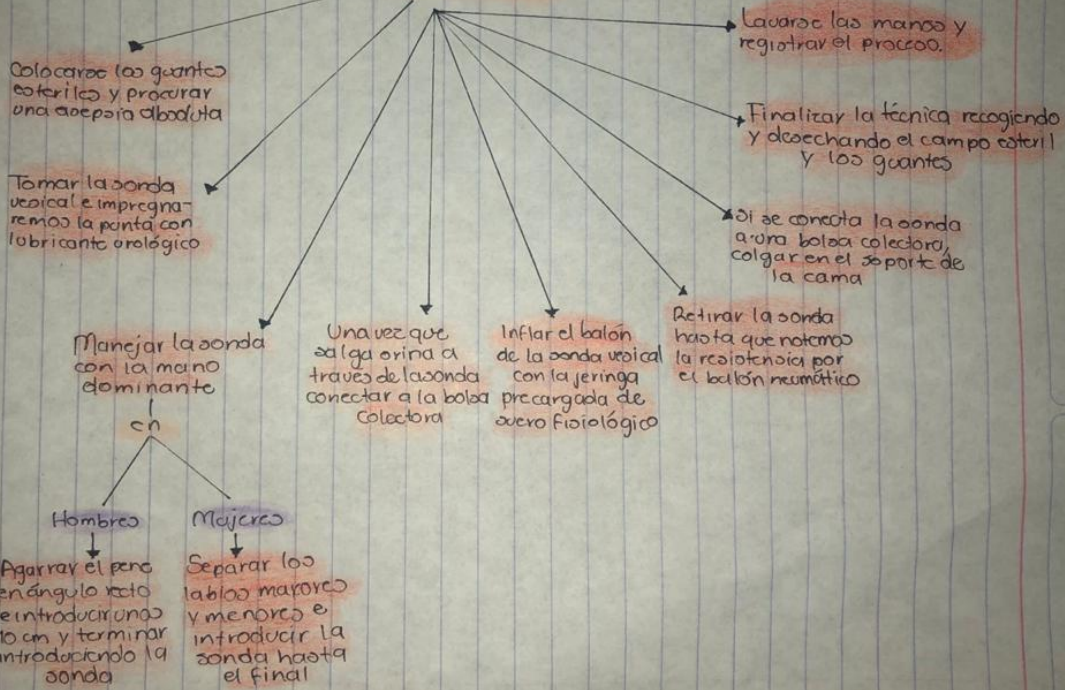 Colocarse los guantes
esteriles y procurar
una asepsia absoduta
Tomar la sonda
vesical e impregna-
remos la punta con
lubricante urológico
Manejar la sonda
con la mano
dominante
en
Hombres
Agarrar el pene
en ángulo recto
e introducir unos
10 cm y terminar
introduciendo la
sonda
Mujeres
Separar los
labios mayores
y menores e
introducir la
sonda hasta
el final
Una vez que
salga orina a
través de la sonda
conectar a la bolsa
colectora
Inflar el balón
de la sonda vesical
con la jeringa
precargada de
suero fisiológico
Retirar la sonda
hasta que notemos
la resistensia por
el balón neumático
Si se conecta la sonda
a una bolsa colectora,
colgar en el soporte de
la cama
Finalizar la técnica recogiendo
y desechando el campo esteril
y los guantes
Lavarse las manos y
registrar el proceso.